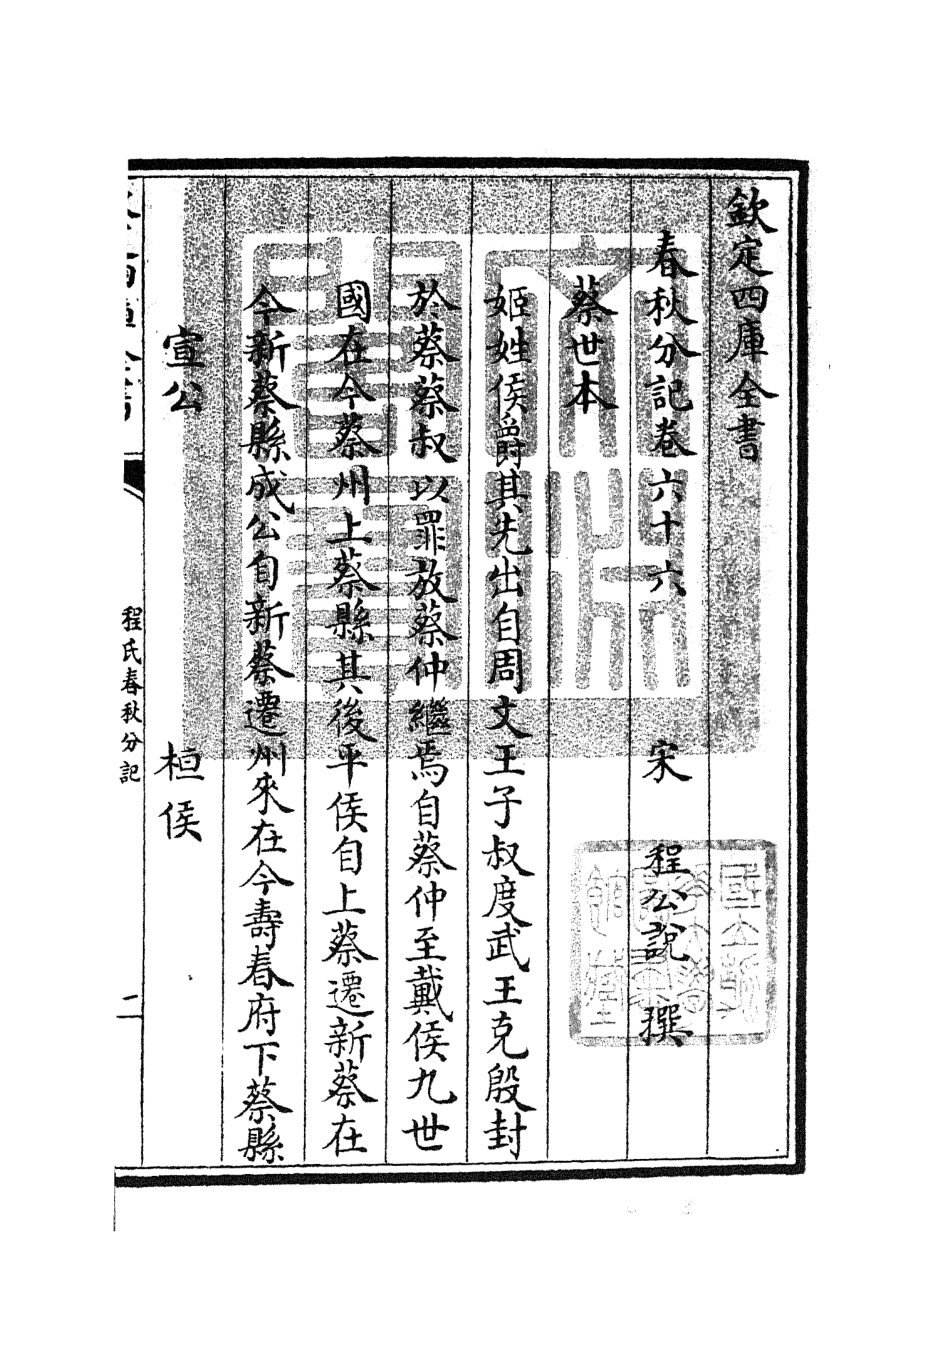 欽定四庫全書
春秋分記卷六十六 宋 程公說 撰
蔡世本
姬姓侯爵其先出自周文王子叔度武王克殷封
於蔡蔡叔以罪放蔡仲繼焉自蔡仲至戴侯九世
國在今蔡州上蔡縣其後平侯自上蔡遷新蔡在
今新蔡縣成公自新蔡遷州來在今壽春府下蔡縣
宣公 桓侯
程氏春秋分記 二